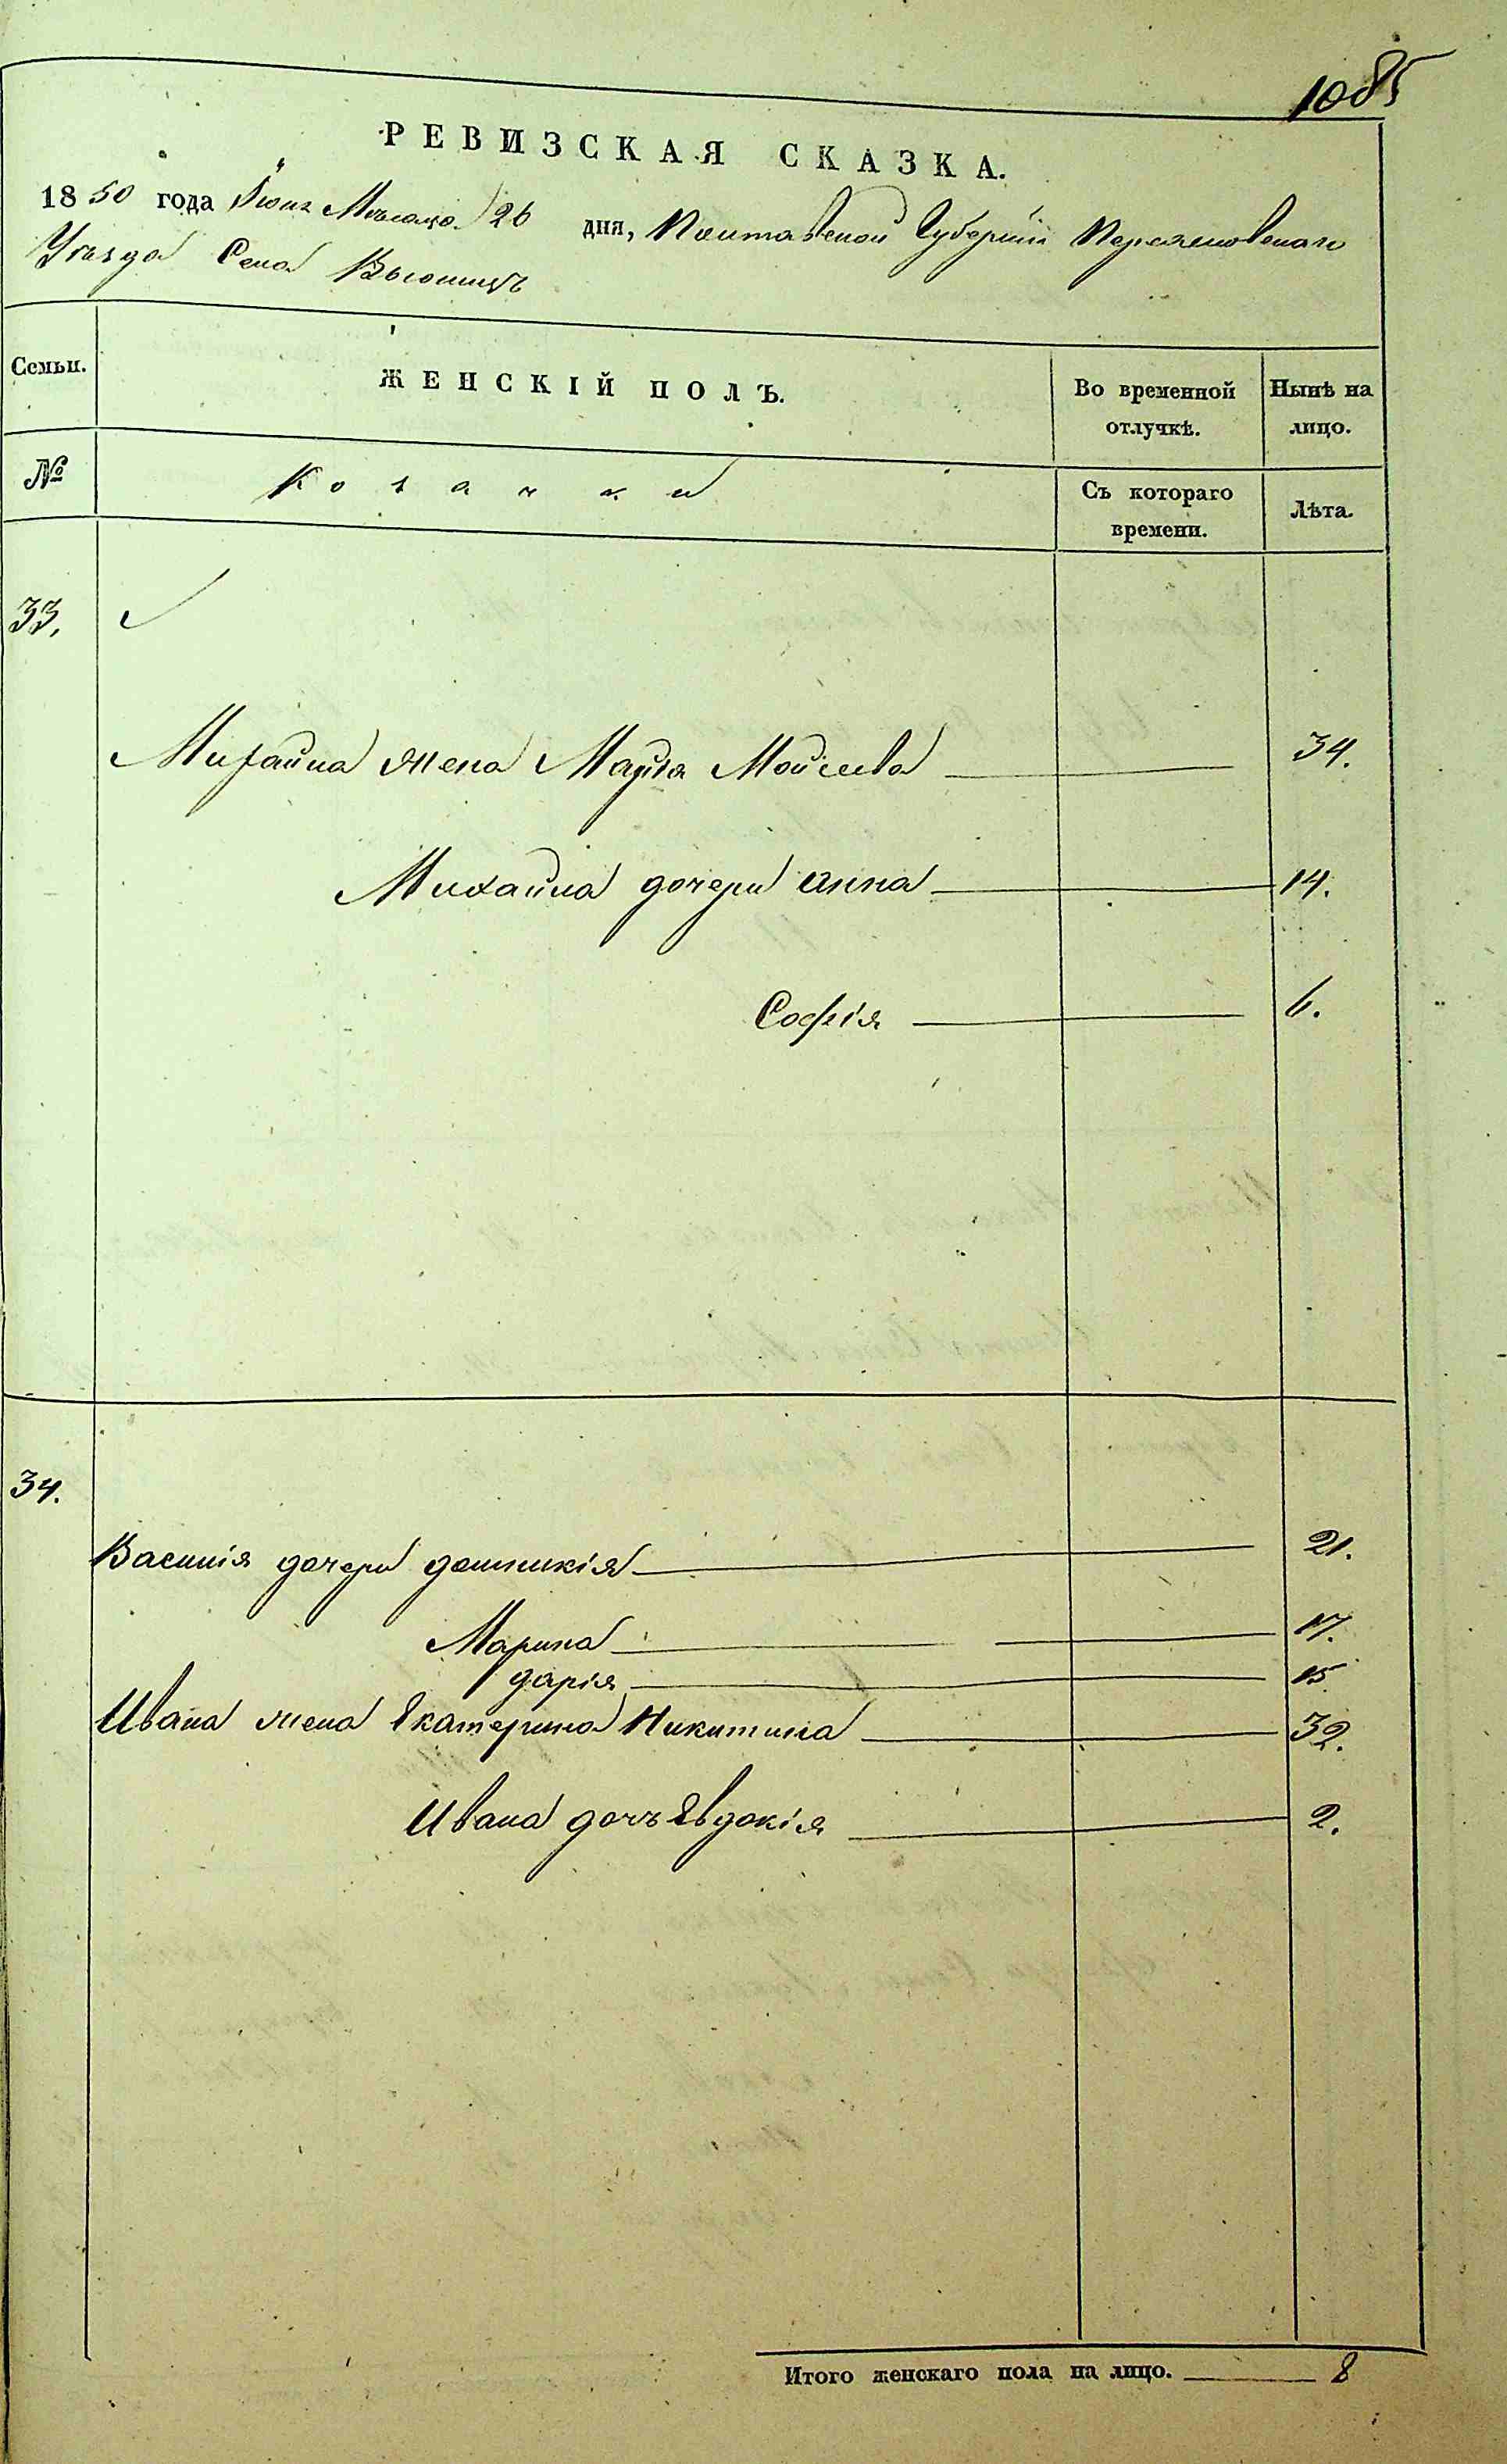 1085
РЕВИЗСКАЯ СКАЗКА.
1850 года Іюня Мѣсяца 26 дня, Полтавской Губерніи Переяславскаго
Уѣзда Села
Семьи.
ЖЕНСКІЙ ПОЛЪ.
Во временной отлучкѣ.
Нынѣ на лицо.
№
Козачки
Съ котораго времени.
Лѣта.
33.
Михайла жена Марія Моисеева 34.
Михайла дочери Анна 14.
Софія 6.
34.
Василія дочери Домникія 21.
Марина 17.
Дарія 15
Ивана жена Екатерина Никитина 32.
Ивана дочь Евдокія 2.
Итого женскаго пола на лицо. 8